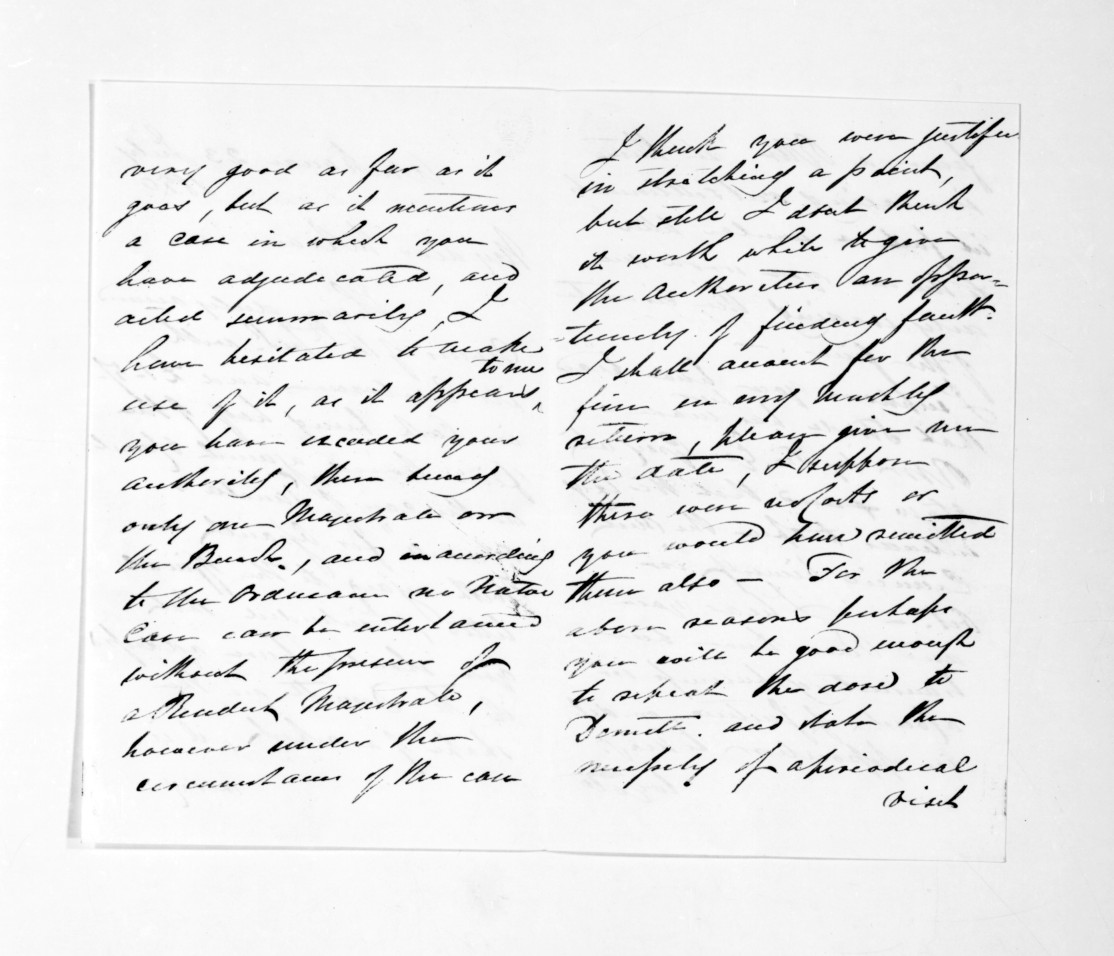 very good as far as it
goes, but as it mentions
a case in which you
have adjudicated, and
acted summarily, I
have hesitated to make
use of it, as it appears to me
you have exceeded your
authority, there being
only one Magistrate on
the Bench, and in according
to the Ordinance no Native
Case can be entertained
without the presence of
a Resident Magistrate,
however under the
circumstances of the case
I think you were justified
in stretching a point,
but still I dont think
it worth while to give
the Authorities an oppor=
=tunity of finding fault.
I shall account for the
fine in my monthly
return, please give me
the date, I suppose
there were no Costs or
you would have remitted
them also — For the
above reasons perhaps
you will be good enough
to repeat the dose to
and state the
necessity of a periodical
visit